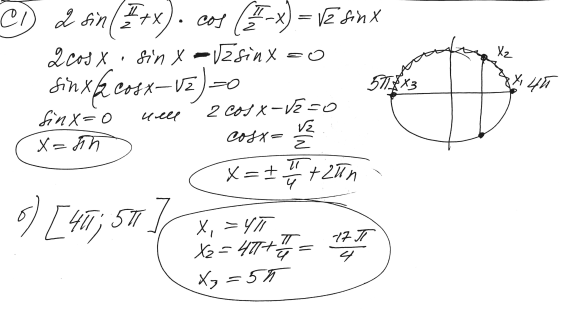 C1 2 sin(π/2+x) · cos(π/2-x) = √2 sin x
2cos x · sin x - √2 sin x = 0
sin x(2 cos x - √2) = 0
sin x = 0 или 2 cos x - √2 = 0
x = πn cos x = √2/2
x = ± π/4 + 2πn
x₂
5π x₃ x₁ 4π
б) [4π; 5π]
x₁ = 4π
x₂ = 4π + π/4 = 17π/4
x₃ = 5π